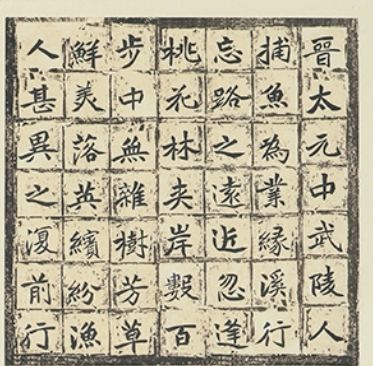 晉太元中武陵人
捕魚為業緣溪行
忘路之遠近忽逢
桃花林夹岸數百
步中無雜樹芳草
鮮美落英繽紛漁
人甚異之復前行